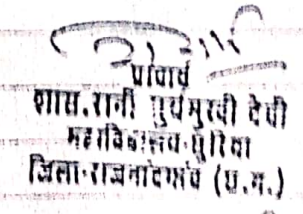 प्राचार्य
शास. रानी सुर्यमुखी देवी
महाविद्यालय-छुरिया
जिला-राजनांदगांव (छ.ग.)